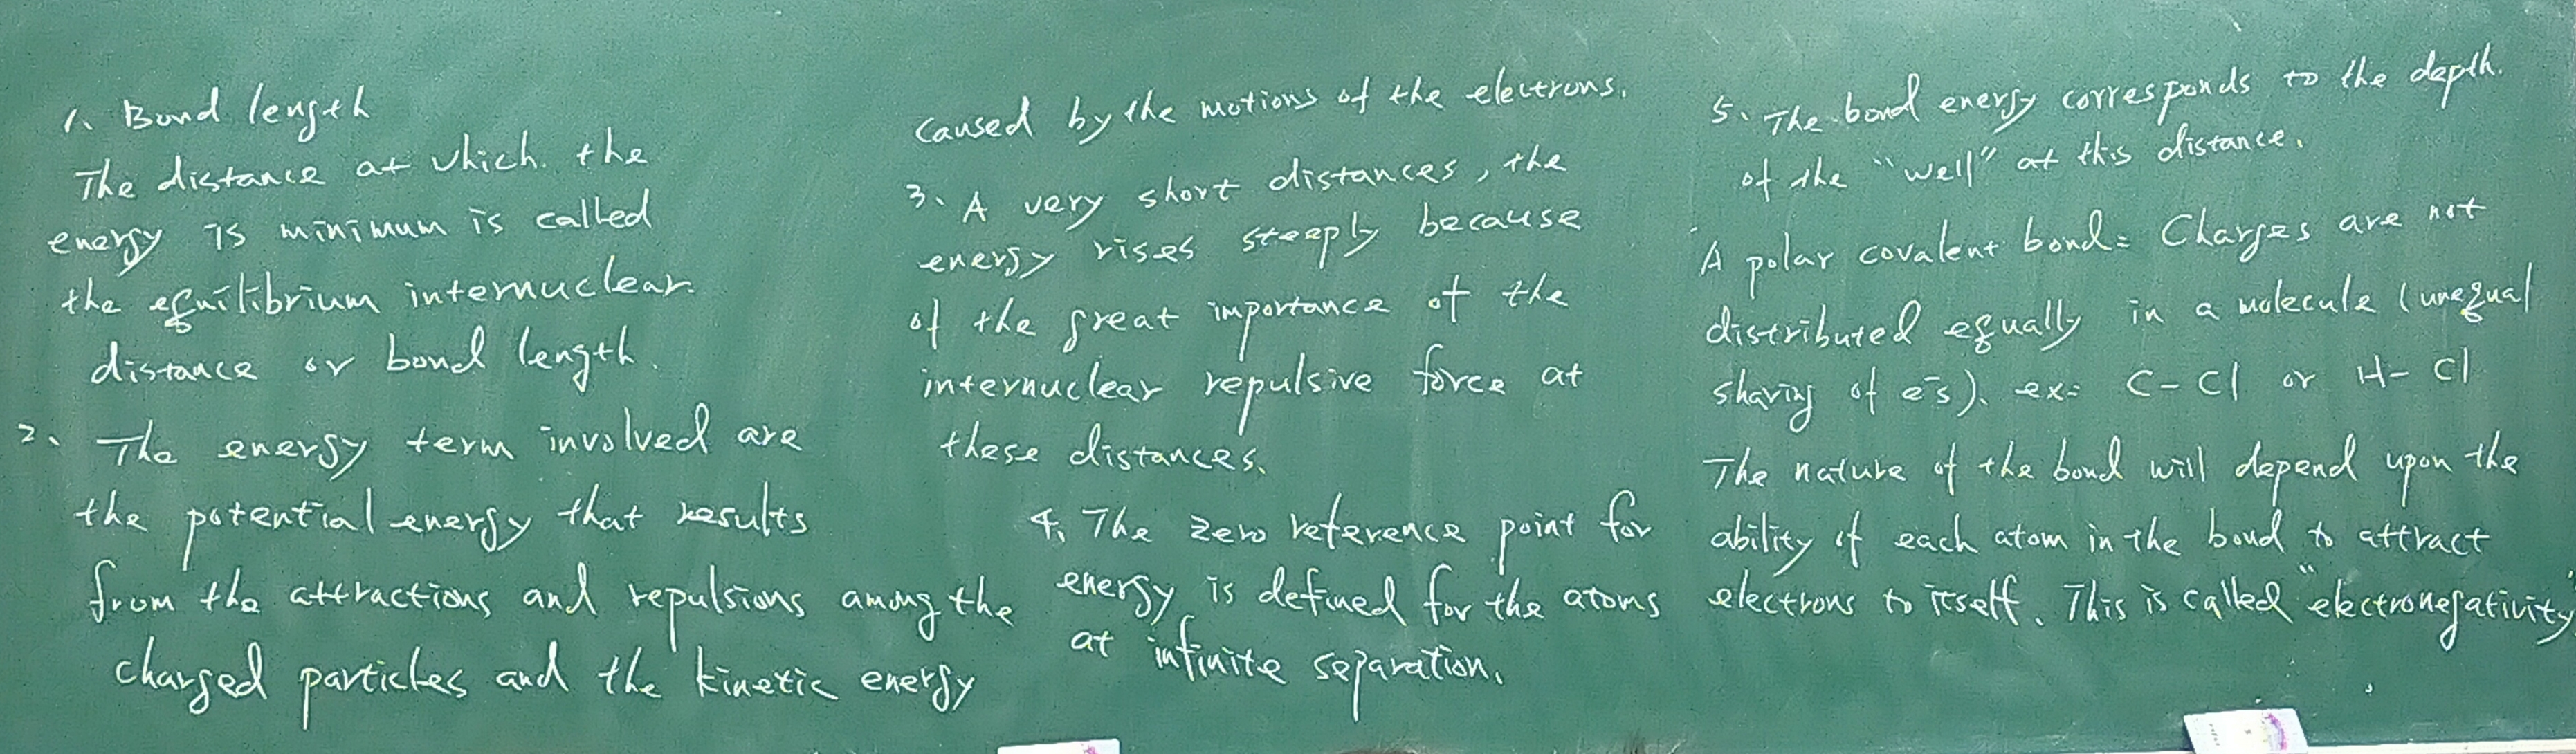 1. Bond length
The distance at which. the
energy is minimum is called
the equilibrium internuclear.
distance or bond length.
2. The energy term involved are
the potential energy that results
from the attractions and repulsions among the
charged particles and the kinetic energy
caused by the motions of the electrons.
3. A very short distances, the
energy rises steeply because
of the great importance of the
internuclear repulsive force at
these distances.
4. The zero reference point for
energy is defined for the atoms
at infinite separation.
5. The bond energy corresponds to the depth.
of the "well" at this distance.
A polar covalent bond: Charges are not
distributed equally in a molecule (unequal
sharing of e⁻s). ex: C-Cl or H-Cl
The nature of the bond will depend upon the
ability of each atom in the bond to attract
electrons to itself. This is called "electronegativity"